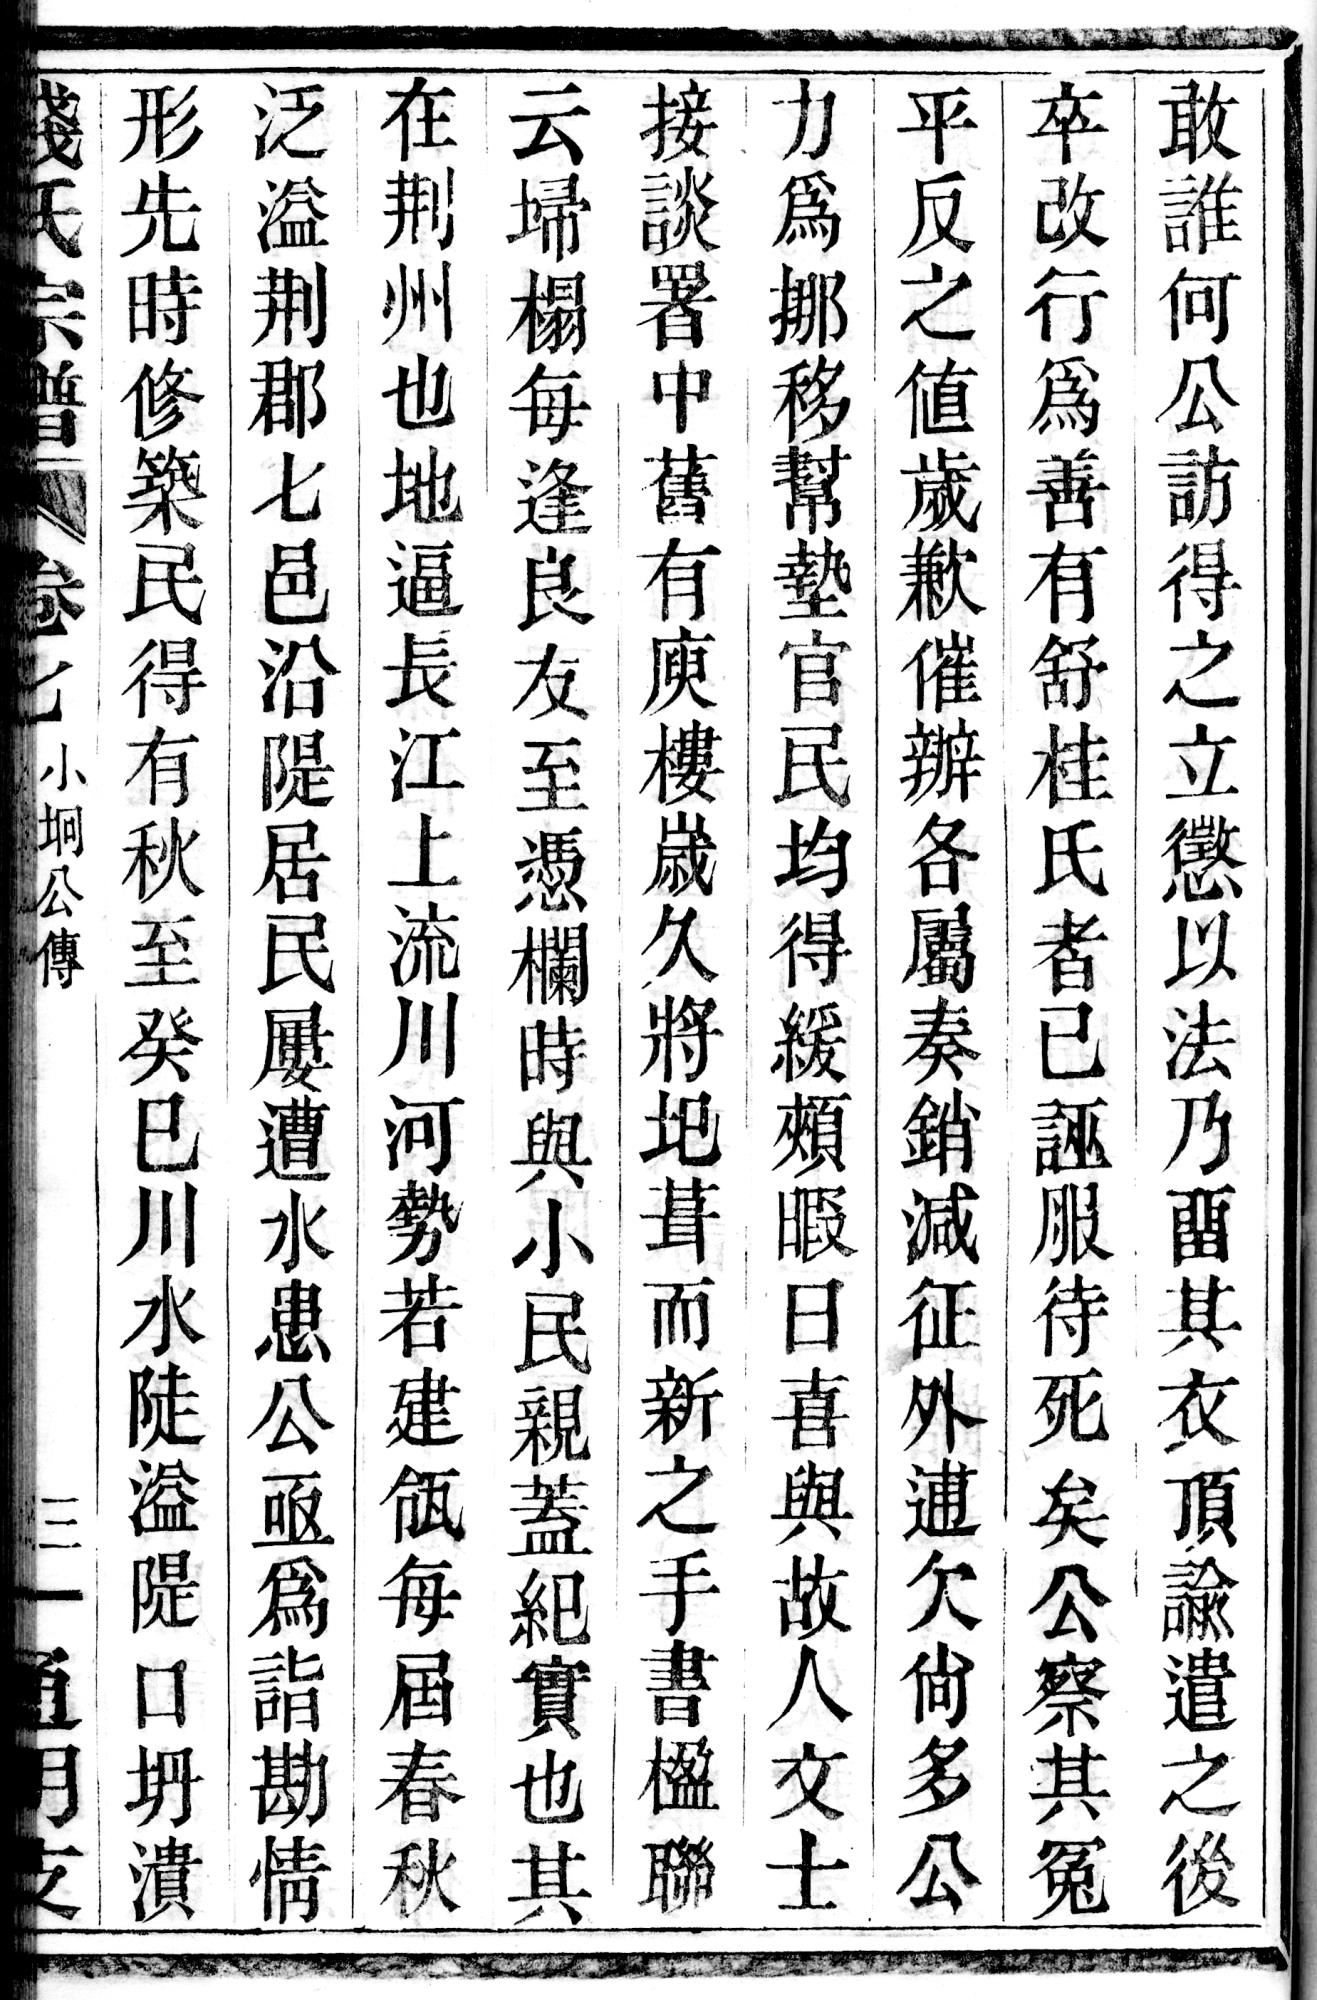 敢誰何公訪得之立懲以法乃畱其衣頂諭遣之後
卒改行爲善有舒桂氏者已誣服待死矣公察其冤
平反之値歲歉催辦各屬奏銷減征外逋欠尙多公
力爲挪移幫墊官民均得緩頰暇日喜與故人文士
接談署中舊有庾樓歲久將圯葺而新之手書楹聯
云埽榻每逢良友至憑欄時與小民親蓋紀實也其
在荆州也地逼長江上流川河勢若建瓴每屆春秋
泛溢荆郡七邑沿隄居民屢遭水患公亟爲詣勘情
形先時修築民得有秋至癸巳川水陡溢隄口坍潰
錢氏宗譜 卷七 小坰公傳 三 通明支